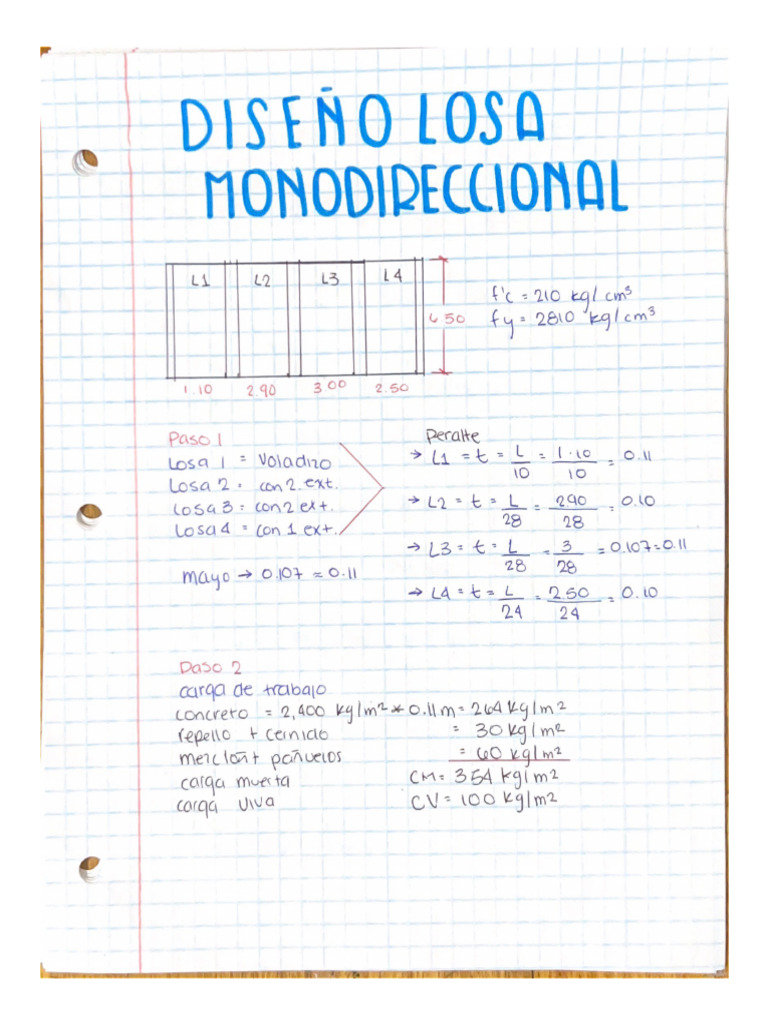 DISEÑO LOSA
MONODIRECCIONAL
L1 L2 L3 L4
f'c = 210 kg/cm³
6.50
fy = 2810 kg/cm³
1.10 2.90 3.00 2.50
Paso 1
Losa 1 = Voladizo
Losa 2 = con 2 ext.
Losa 3 = con 2 ext.
Losa 4 = con 1 ext.
mayo → 0.107 = 0.11
Peralte
→ L1 = t = L/10 = 1.10/10 = 0.11
→ L2 = t = L/28 = 2.90/28 = 0.10
→ L3 = t = L/28 = 3/28 = 0.107 = 0.11
→ L4 = t = L/24 = 2.50/24 = 0.10
Paso 2
carga de trabajo
concreto = 2,400 kg/m² * 0.11 m = 264 kg/m²
repello + cernido = 30 kg/m²
mezclon + pañuelos = 60 kg/m²
carga muerta CM = 354 kg/m²
carga viva CV = 100 kg/m²